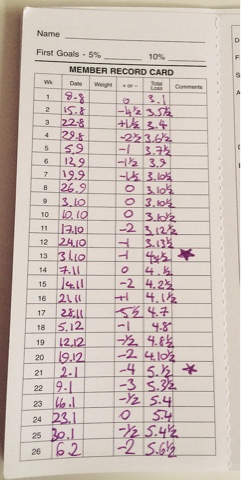 Name
First Goals - 5% 10%
MEMBER RECORD CARD
Wk Date Weight + or - Total Loss Comments
1 8.8 0 3.1
2 15.8 -4½ 3.5½
3 22.8 +1½ 3.4
4 29.8 -2½ 3.6½
5 5.9 -1 3.7½
6 12.9 -1½ 3.9
7 19.9 -1½ 3.10½
8 26.9 0 3.10½
9 3.10 0 3.10½
10 10.10 0 3.10½
11 17.10 -2 3.12½
12 24.10 -1 3.13½
13 31.10 -1 4.½
14 7.11 0 4.½
15 14.11 -2 4.2½
16 21.11 +1 4.1½
17 28.11 -5½ 4.7
18 5.12 -1 4.8
19 12.12 -½ 4.8½
20 19.12 -2 4.10½
21 2.1 -4 5.½
22 9.1 -3 5.3½
23 16.1 -½ 5.4
24 23.1 0 5.4
25 30.1 -½ 5.4½
26 6.2 -2 5.6½